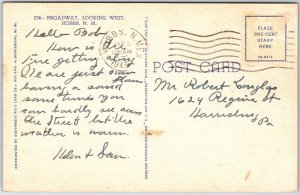 296—BROADWAY, LOOKING WEST,
HOBBS, N. M.
Hello Bob
How is the
Fire getting along
We are just now
having a sand
storm
some times you
can hardly see across
the street but the
weather is warm.
Helen & Sam
HOBBS, N. MEX.
POST CARD
PLACE
ONE CENT
STAMP
HERE
Mr Robert Douglas
1624 Regina St
Harrisburg
Pa